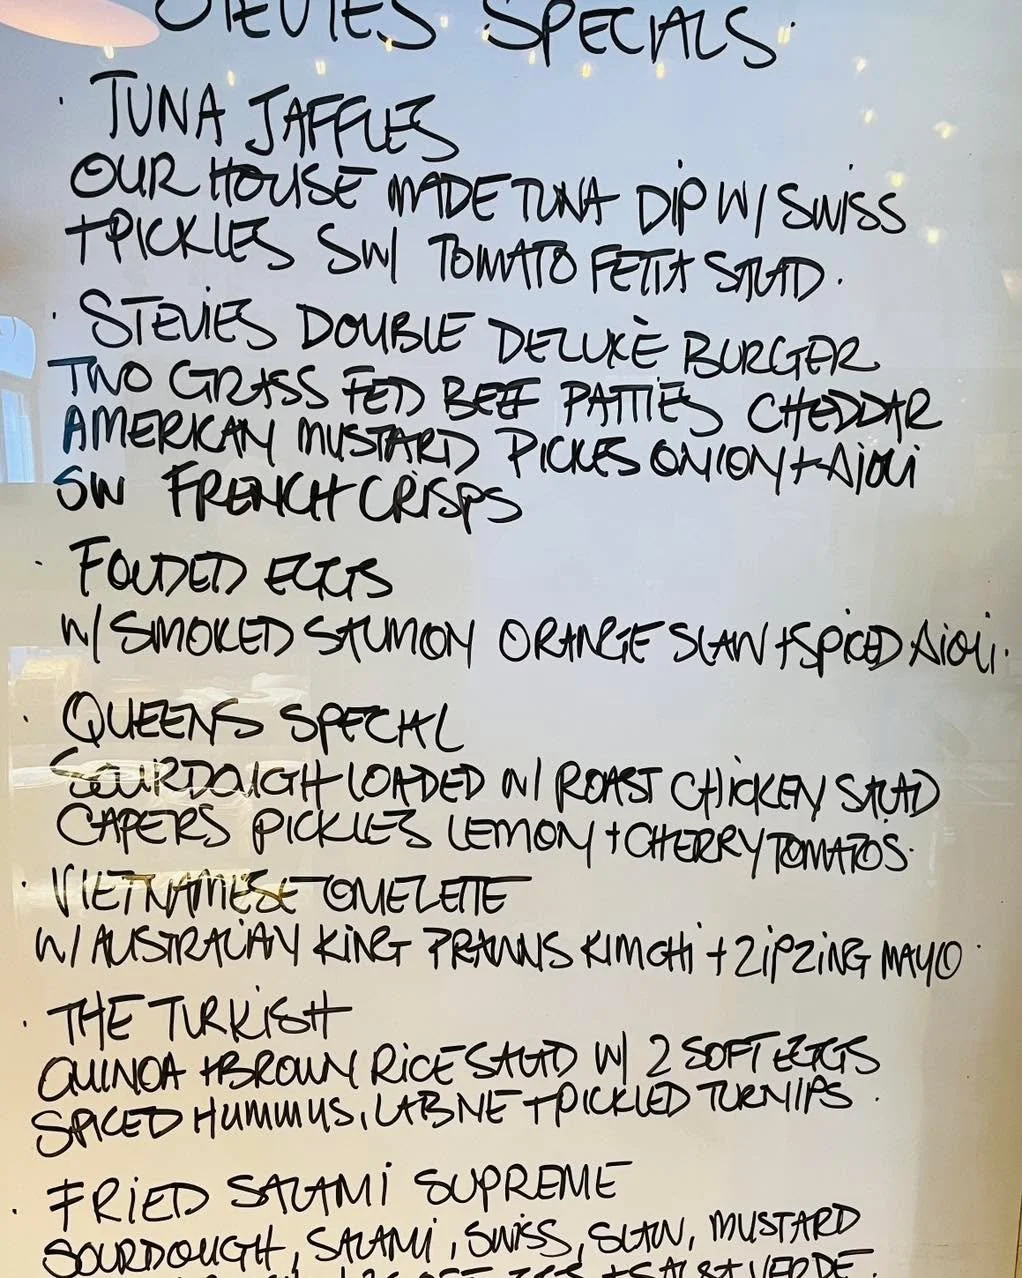 STEVIES SPECIALS
· TUNA JAFFLES
OUR HOUSE MADE TUNA DIP W/ SWISS
+PICKLES SW/ TOMATO FETTA SALAD.
· STEVIES DOUBLE DELUXÈ BURGER
TWO GRASS FED BEEF PATTIES CHEDDAR
AMERICAN MUSTARD PICKES ONION + AJOLI
SW FRENCH CRISPS
· FOLDED EGGS
W/ SMOKED SALMON ORANGE SLAW + SPICED AIOLI.
· QUEENS SPECIAL
SOURDOUGH LOADED W/ ROAST CHICKEN SALAD
CAPERS PICKLES LEMON + CHERRY TOMATOS.
· VIETNAMESE OMELETTE
W/ AUSTRALIAN KING PRAWNS KIMCHI + ZIPZING MAYO
· THE TURKISH
QUINOA + BROWN RICE SALAD W/ 2 SOFT EGGS
SPICED HUMMUS, LABNE + PICKLED TURNIPS.
· FRIED SALAMI SUPREME
SOURDOUGH, SALAMI, SWISS, SLAW, MUSTARD
SOFT EGGS + SALSA VERDE.